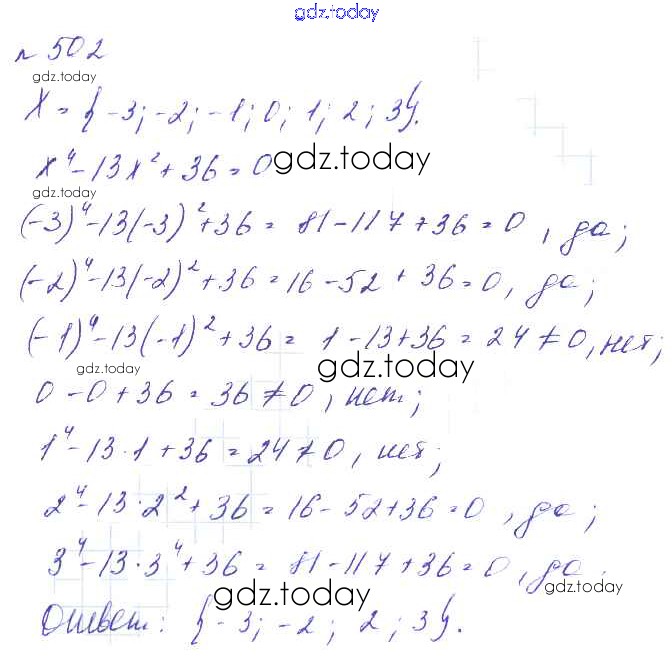 gdz.today
№ 502
gdz.today
X = {-3; -2; -1; 0; 1; 2; 3}.
x⁴ - 13x² + 36 = 0
gdz.today
gdz.today
(-3)⁴ - 13(-3)² + 36 = 81 - 117 + 36 = 0, да;
(-2)⁴ - 13(-2)² + 36 = 16 - 52 + 36 = 0, да;
(-1)⁴ - 13(-1)² + 36 = 1 - 13 + 36 = 24 ≠ 0, нет;
gdz.today
gdz.today
0 - 0 + 36 = 36 ≠ 0, нет;
1⁴ - 13·1 + 36 = 24 ≠ 0, нет;
2⁴ - 13·2² + 36 = 16 - 52 + 36 = 0, да;
3⁴ - 13·3⁴ + 36 = 81 - 117 + 36 = 0, да.
gdz.today
Ответ: {-3; -2; 2; 3}.
gdz.today